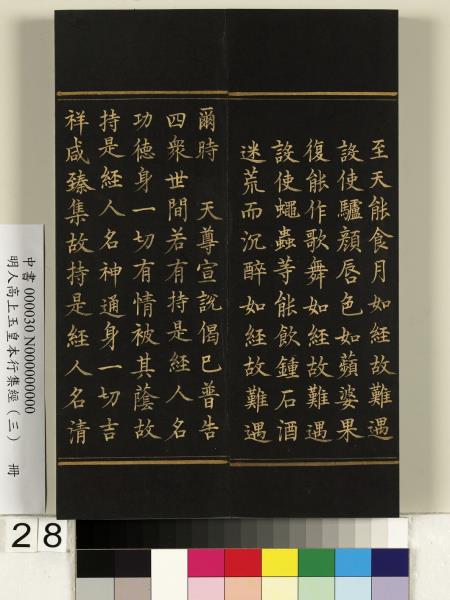 至天能食月如經故難遇
設使驢顏唇色如蘋婆果
復能作歌舞如經故難遇
設使蠅蟲等能飲鍾石酒
迷荒而沉醉如經故難遇
爾時　天尊宣說偈已普告
四衆世間若有持是經人名
功德身一切有情被其蔭故
持是經人名神通身一切吉
祥咸臻集故持是經人名清
中書 000030 N000000000
明人高上玉皇本行集經（三） 冊
28